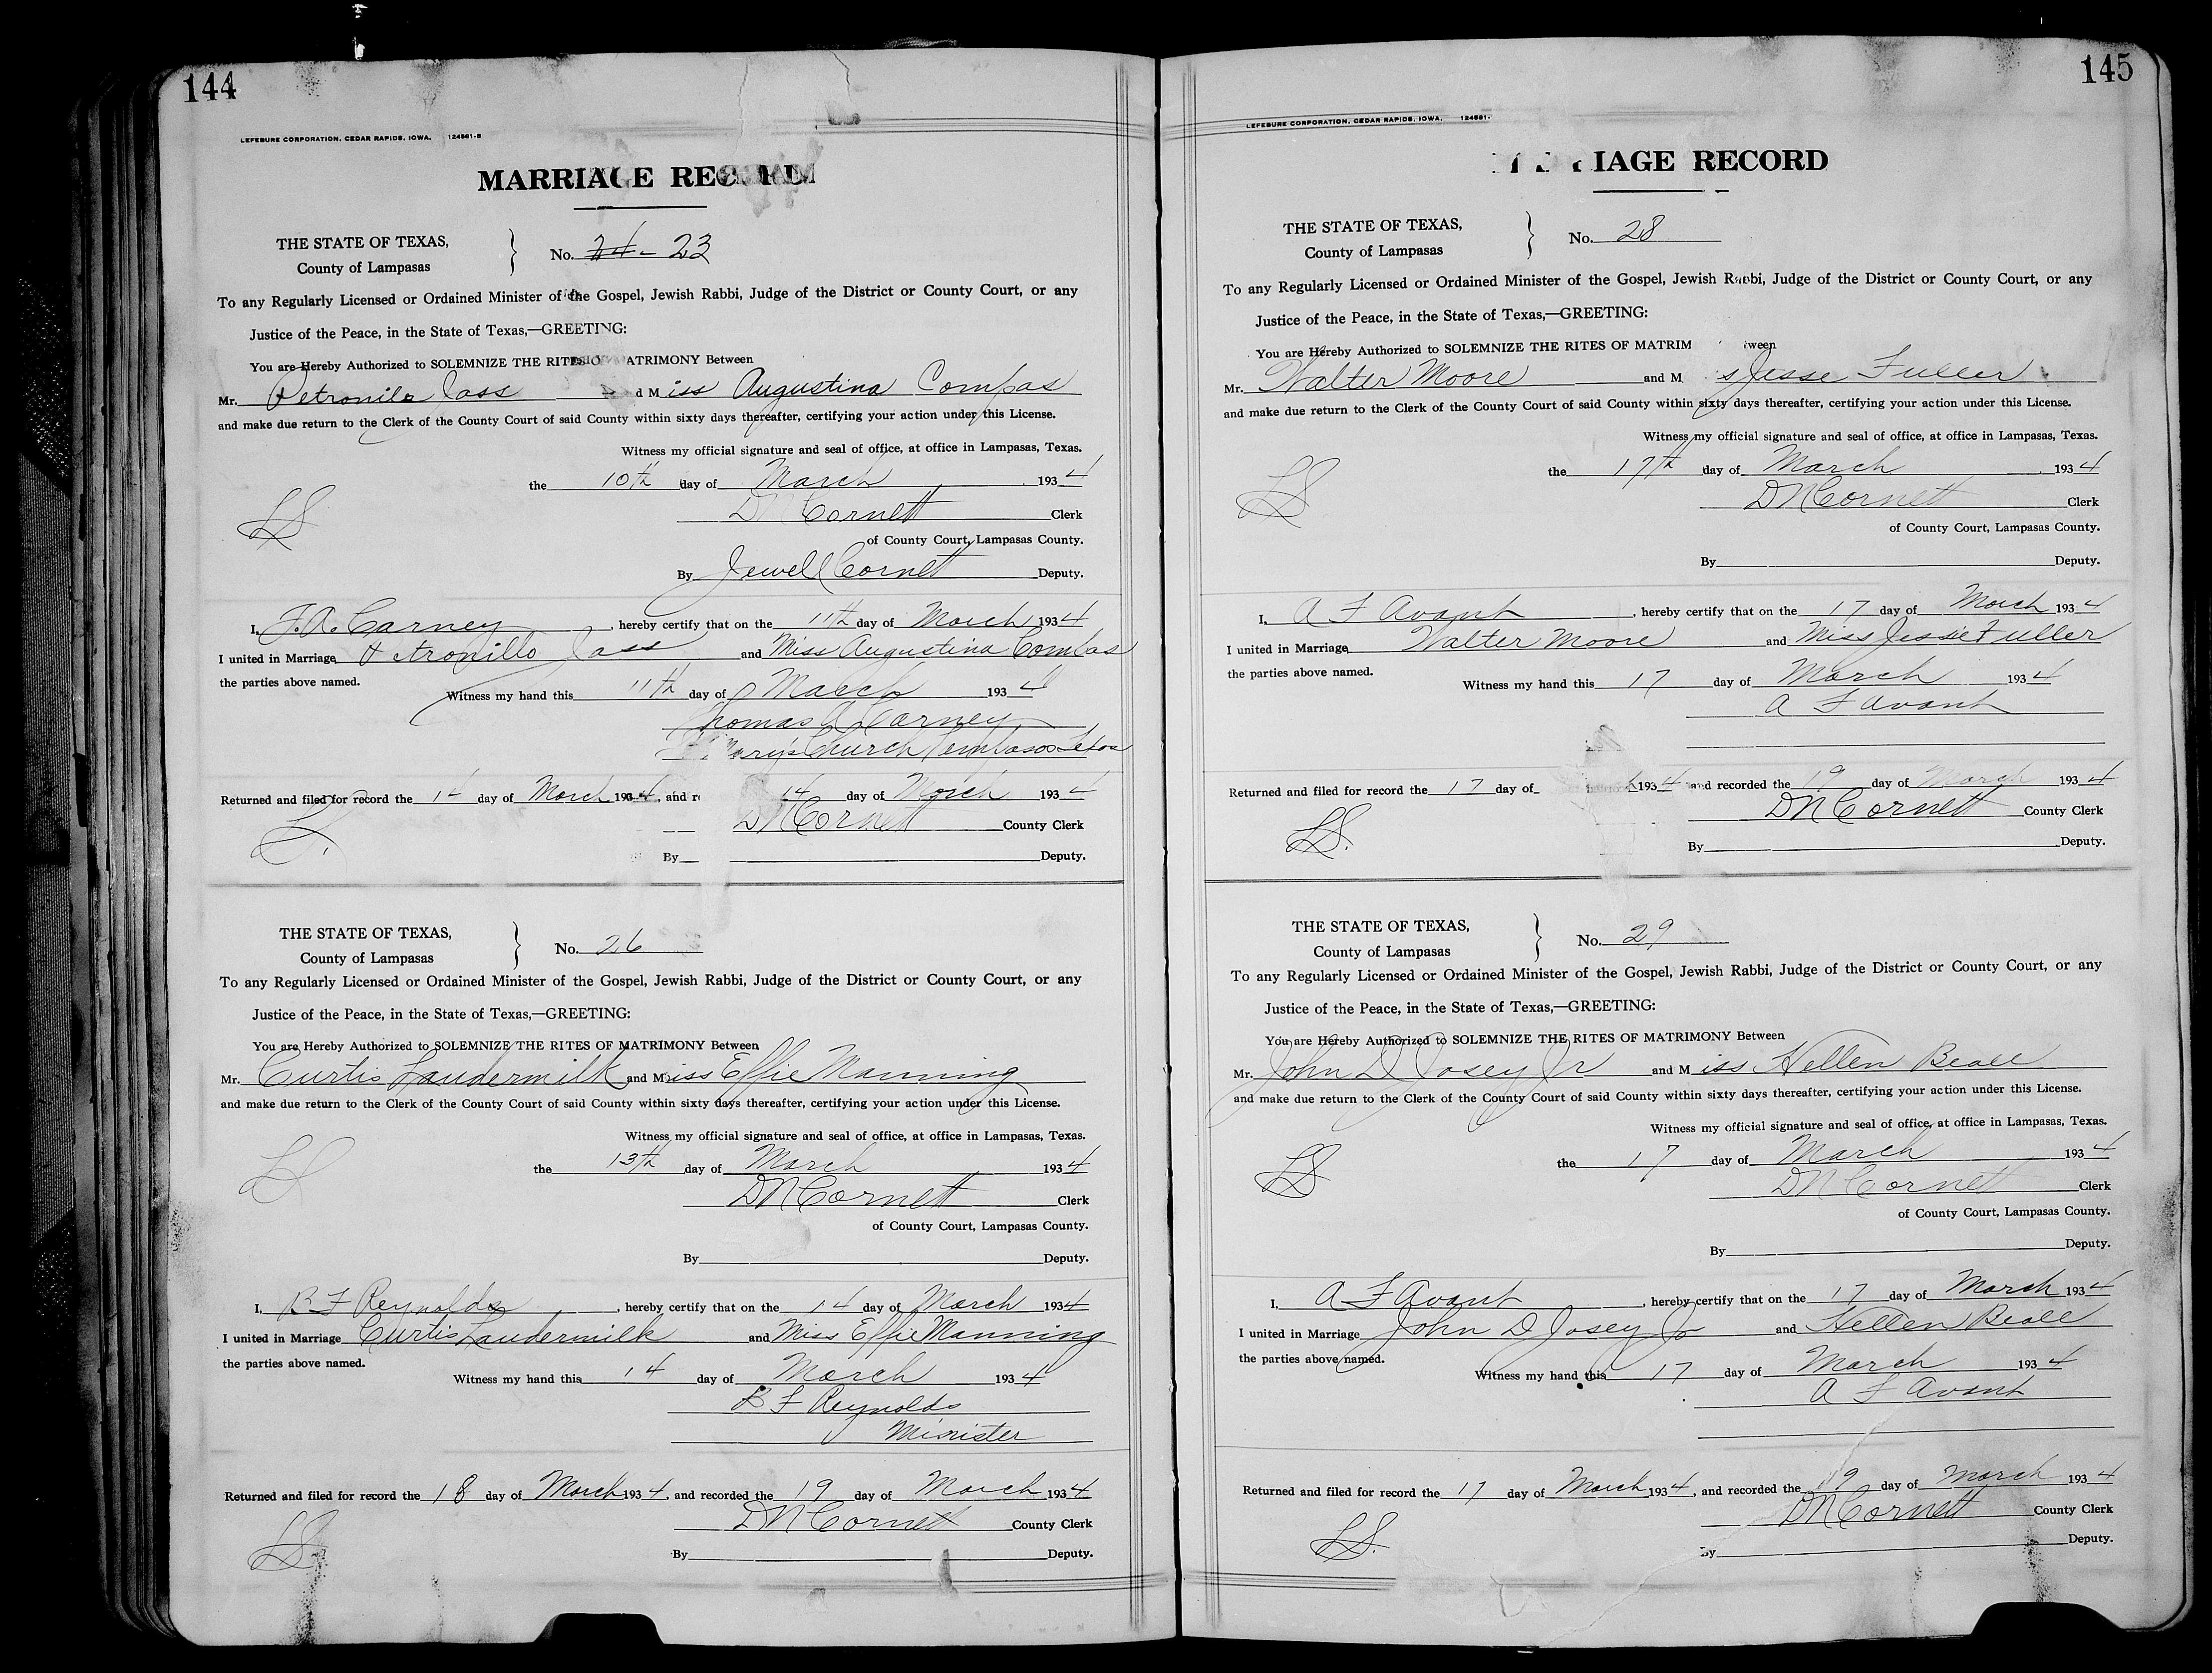 144
LEFEBURE CORPORATION, CEDAR RAPIDS, IOWA. 124581-B
MARRIAGE RECORD
THE STATE OF TEXAS,
County of Lampasas
No. 24 - 23
To any Regularly Licensed or Ordained Minister of the Gospel, Jewish Rabbi, Judge of the District or County Court, or any
Justice of the Peace, in the State of Texas,—GREETING:
You are Hereby Authorized to SOLEMNIZE THE RITES OF MATRIMONY Between
Mr. Petronilo Jass and Miss Augustina Compas
and make due return to the Clerk of the County Court of said County within sixty days thereafter, certifying your action under this License.
Witness my official signature and seal of office, at office in Lampasas, Texas.
the 10th day of March 1934
LS
D N Cornett Clerk
of County Court, Lampasas County.
By Jewell Cornett Deputy.
I, T. A. Carney, hereby certify that on the 11th day of March, 1934
I united in Marriage Petronillo Jass and Miss Augustina Compas
the parties above named.
Witness my hand this 11th day of March 1934
Thomas A Carney
Mary's Church Lampasas Texas
Returned and filed for record the 14 day of March 1934, and r 14 day of March 1934
LS.
D N Cornett County Clerk
By Deputy.
THE STATE OF TEXAS,
County of Lampasas
No. 26
To any Regularly Licensed or Ordained Minister of the Gospel, Jewish Rabbi, Judge of the District or County Court, or any
Justice of the Peace, in the State of Texas,—GREETING:
You are Hereby Authorized to SOLEMNIZE THE RITES OF MATRIMONY Between
Mr. Curtis Laudermilk and Miss Effie Manning
and make due return to the Clerk of the County Court of said County within sixty days thereafter, certifying your action under this License.
Witness my official signature and seal of office, at office in Lampasas, Texas.
the 13th day of March 1934
LS
D N Cornett Clerk
of County Court, Lampasas County.
By Deputy.
I, B F Reynolds, hereby certify that on the 14 day of March 1934
I united in Marriage Curtis Laudermilk and Miss Effie Manning
the parties above named.
Witness my hand this 14 day of March 1934
B F Reynolds
Minister
Returned and filed for record the 18 day of March 1934, and recorded the 19 day of March 1934
LS.
D N Cornett County Clerk
By Deputy.
145
LEFEBURE CORPORATION, CEDAR RAPIDS, IOWA. 124581-
RIAGE RECORD
THE STATE OF TEXAS,
County of Lampasas
No. 28
To any Regularly Licensed or Ordained Minister of the Gospel, Jewish Rabbi, Judge of the District or County Court, or any
Justice of the Peace, in the State of Texas,—GREETING:
You are Hereby Authorized to SOLEMNIZE THE RITES OF MATRIM tween
Mr. Walter Moore and M s Jesse Fuller
and make due return to the Clerk of the County Court of said County within sixty days thereafter, certifying your action under this License.
Witness my official signature and seal of office, at office in Lampasas, Texas.
the 17th day of March 1934
LS
D N Cornett Clerk
of County Court, Lampasas County.
By Deputy.
I, A F Avant, hereby certify that on the 17 day of March 1934
I united in Marriage Walter Moore and Miss Jessie Fuller
the parties above named.
Witness my hand this 17 day of March 1934
A F Avant
Returned and filed for record the 17 day of h 1934 and recorded the 19 day of March 1934
LS.
D N Cornett County Clerk
By Deputy.
THE STATE OF TEXAS,
County of Lampasas
No. 29
To any Regularly Licensed or Ordained Minister of the Gospel, Jewish Rabbi, Judge of the District or County Court, or any
Justice of the Peace, in the State of Texas,—GREETING:
You are Hereby Authorized to SOLEMNIZE THE RITES OF MATRIMONY Between
Mr. John D Josey Jr and Miss Hellen Beall
and make due return to the Clerk of the County Court of said County within sixty days thereafter, certifying your action under this License.
Witness my official signature and seal of office, at office in Lampasas, Texas.
the 17 day of March 1934
LS
D N Cornett Clerk
of County Court, Lampasas County.
By Deputy.
I, A F Avant, hereby certify that on the 17 day of March 1934
I united in Marriage John D Josey Jr and Hellen Beall
the parties above named.
Witness my hand this 17 day of March 1934
A F Avant
Returned and filed for record the 17 day of March 1934, and recorded the 19 day of March 1934
LS.
D N Cornett County Clerk
By Deputy.